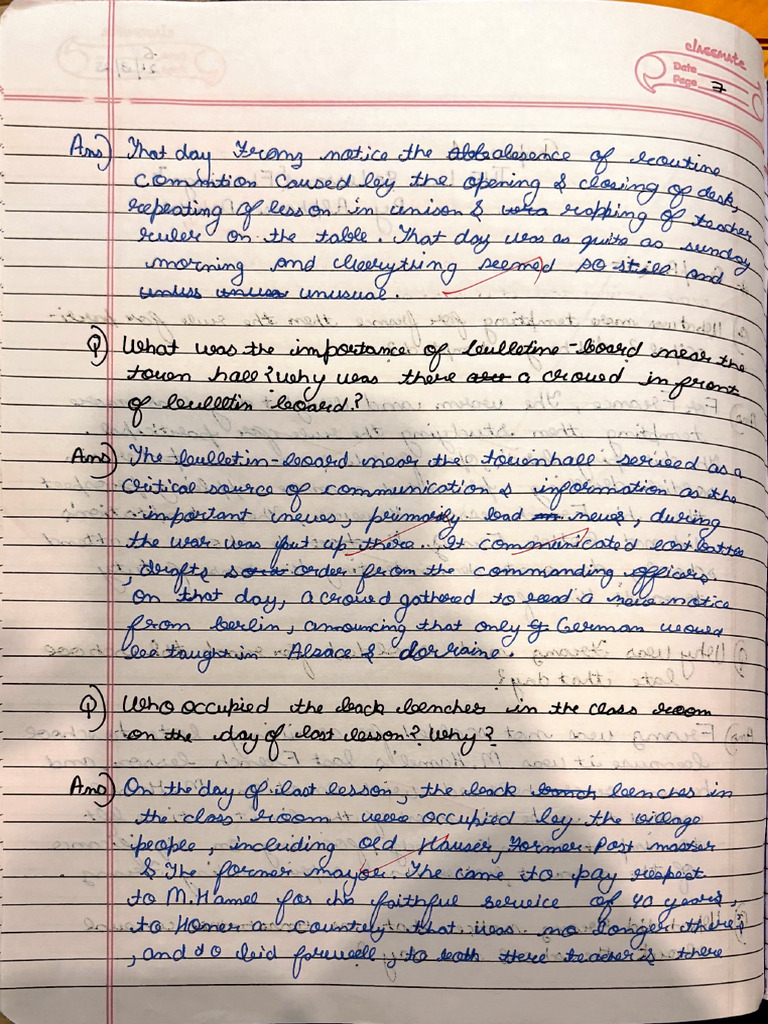 classmate
Date
Page 7
Ans) That day Franz notice the absence of routine
commotion caused by the opening & closing of desk,
repeating of lesson in unison & rapping of teacher
ruler on the table. That day was as quite as sunday
morning and everything seemed so still and
unusual.
Q) What was the importance of bulletine-board near the
town hall? Why was there a crowd in front
of bulletin board?
Ans) The bulletin-board near the townhall served as a
critical source of communication & information as the
important news, primarily bad news, during
the war was put up there. It communicated lost battles
, drafts order from the commanding officers.
on that day, a crowd gathered to read a new notice
from berlin, announcing that only German would
be taught in Alsace & Lorraine.
Q) Who occupied the back benches in the class room
on the day of last lesson? Why?
Ans) On the day of last lesson, the back benches in
the class room were occupied by the village
people, including old Hauser, Former Post master
& The former mayor. The came to pay respect
to M.Hamel for his faithful service of 40 years,
to Honer a country that was no longer there's
, and to bid farewell, to both there teacher & there